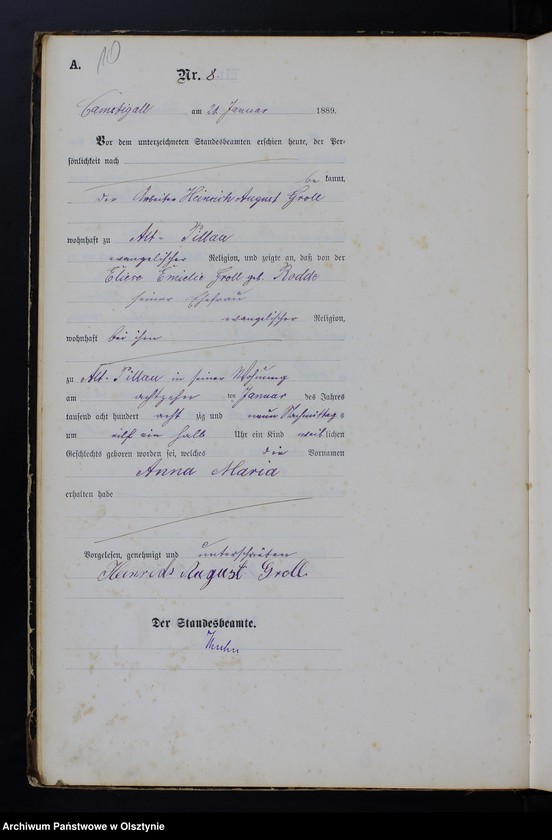 A.
10
Nr. 8.
Camstigall am 21. Januar 1889.
Vor dem unterzeichneten Standesbeamten erschien heute, der Per-
sönlichkeit nach
be kannt,
der Arbeiter Heinrich August Groll
wohnhaft zu Alt-Pillau
evangelischer Religion, und zeigte an, daß von der
Emielie Groll geb. Rodde
seiner Ehefrau
evangelischer Religion,
wohnhaft bei ihm
zu Alt-Pillau in seiner Wohnung
am achtzehn ten Januar des Jahres
tausend acht hundert acht zig und neun Nachmittag s
um eilf ein halb Uhr ein Kind weib lichen
Geschlechts geboren worden sei, welches die Vornamen
Anna Maria
erhalten habe
Vorgelesen, genehmigt und unterschrieben
Heinrich August Groll
Der Standesbeamte.
Archiwum Państwowe w Olsztynie